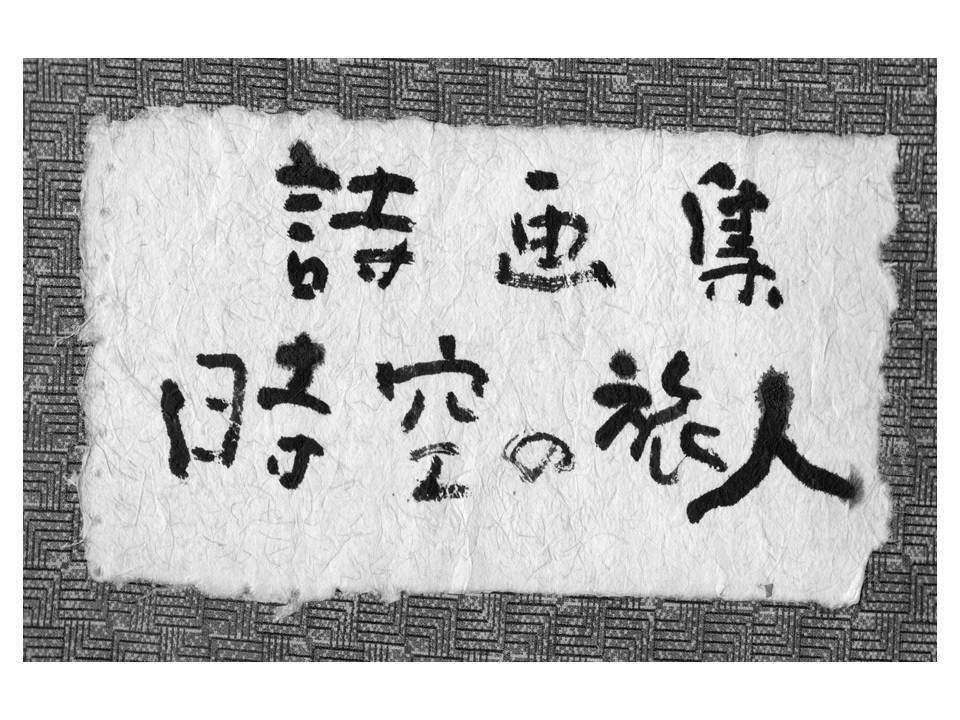 詩画集
時空の旅人